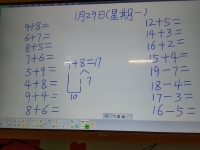 1月29日(星期一)
9+8=
6+7=
8+5=
7+6=
5+9=
4+8=
9+4=
8+6=
+8=17
7
10
12+5=
14+3=
16+2=
15+4=
19-7=
18-4=
17-3=
16-5=